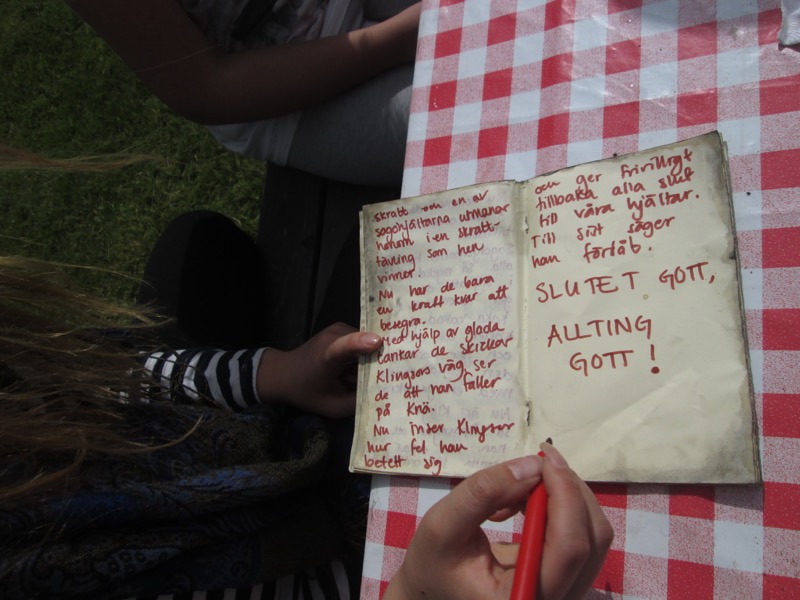 skratt och en av
sagohjältarna utmanar
honom i en skratt-
tävling som hen
vinner.
Nu har de bara
en kraft kvar att
besegra.
Med hjälp av glada
tankar de skickar
Klingsors väg ser
de att han faller
på knä.
Nu inser Klingsor
hur fel han
betett sig
och ger frivilligt
tillbaka alla slut
till våra hjältar.
Till sist säger
han förlåt.
SLUTET GOTT,
ALLTING
GOTT!